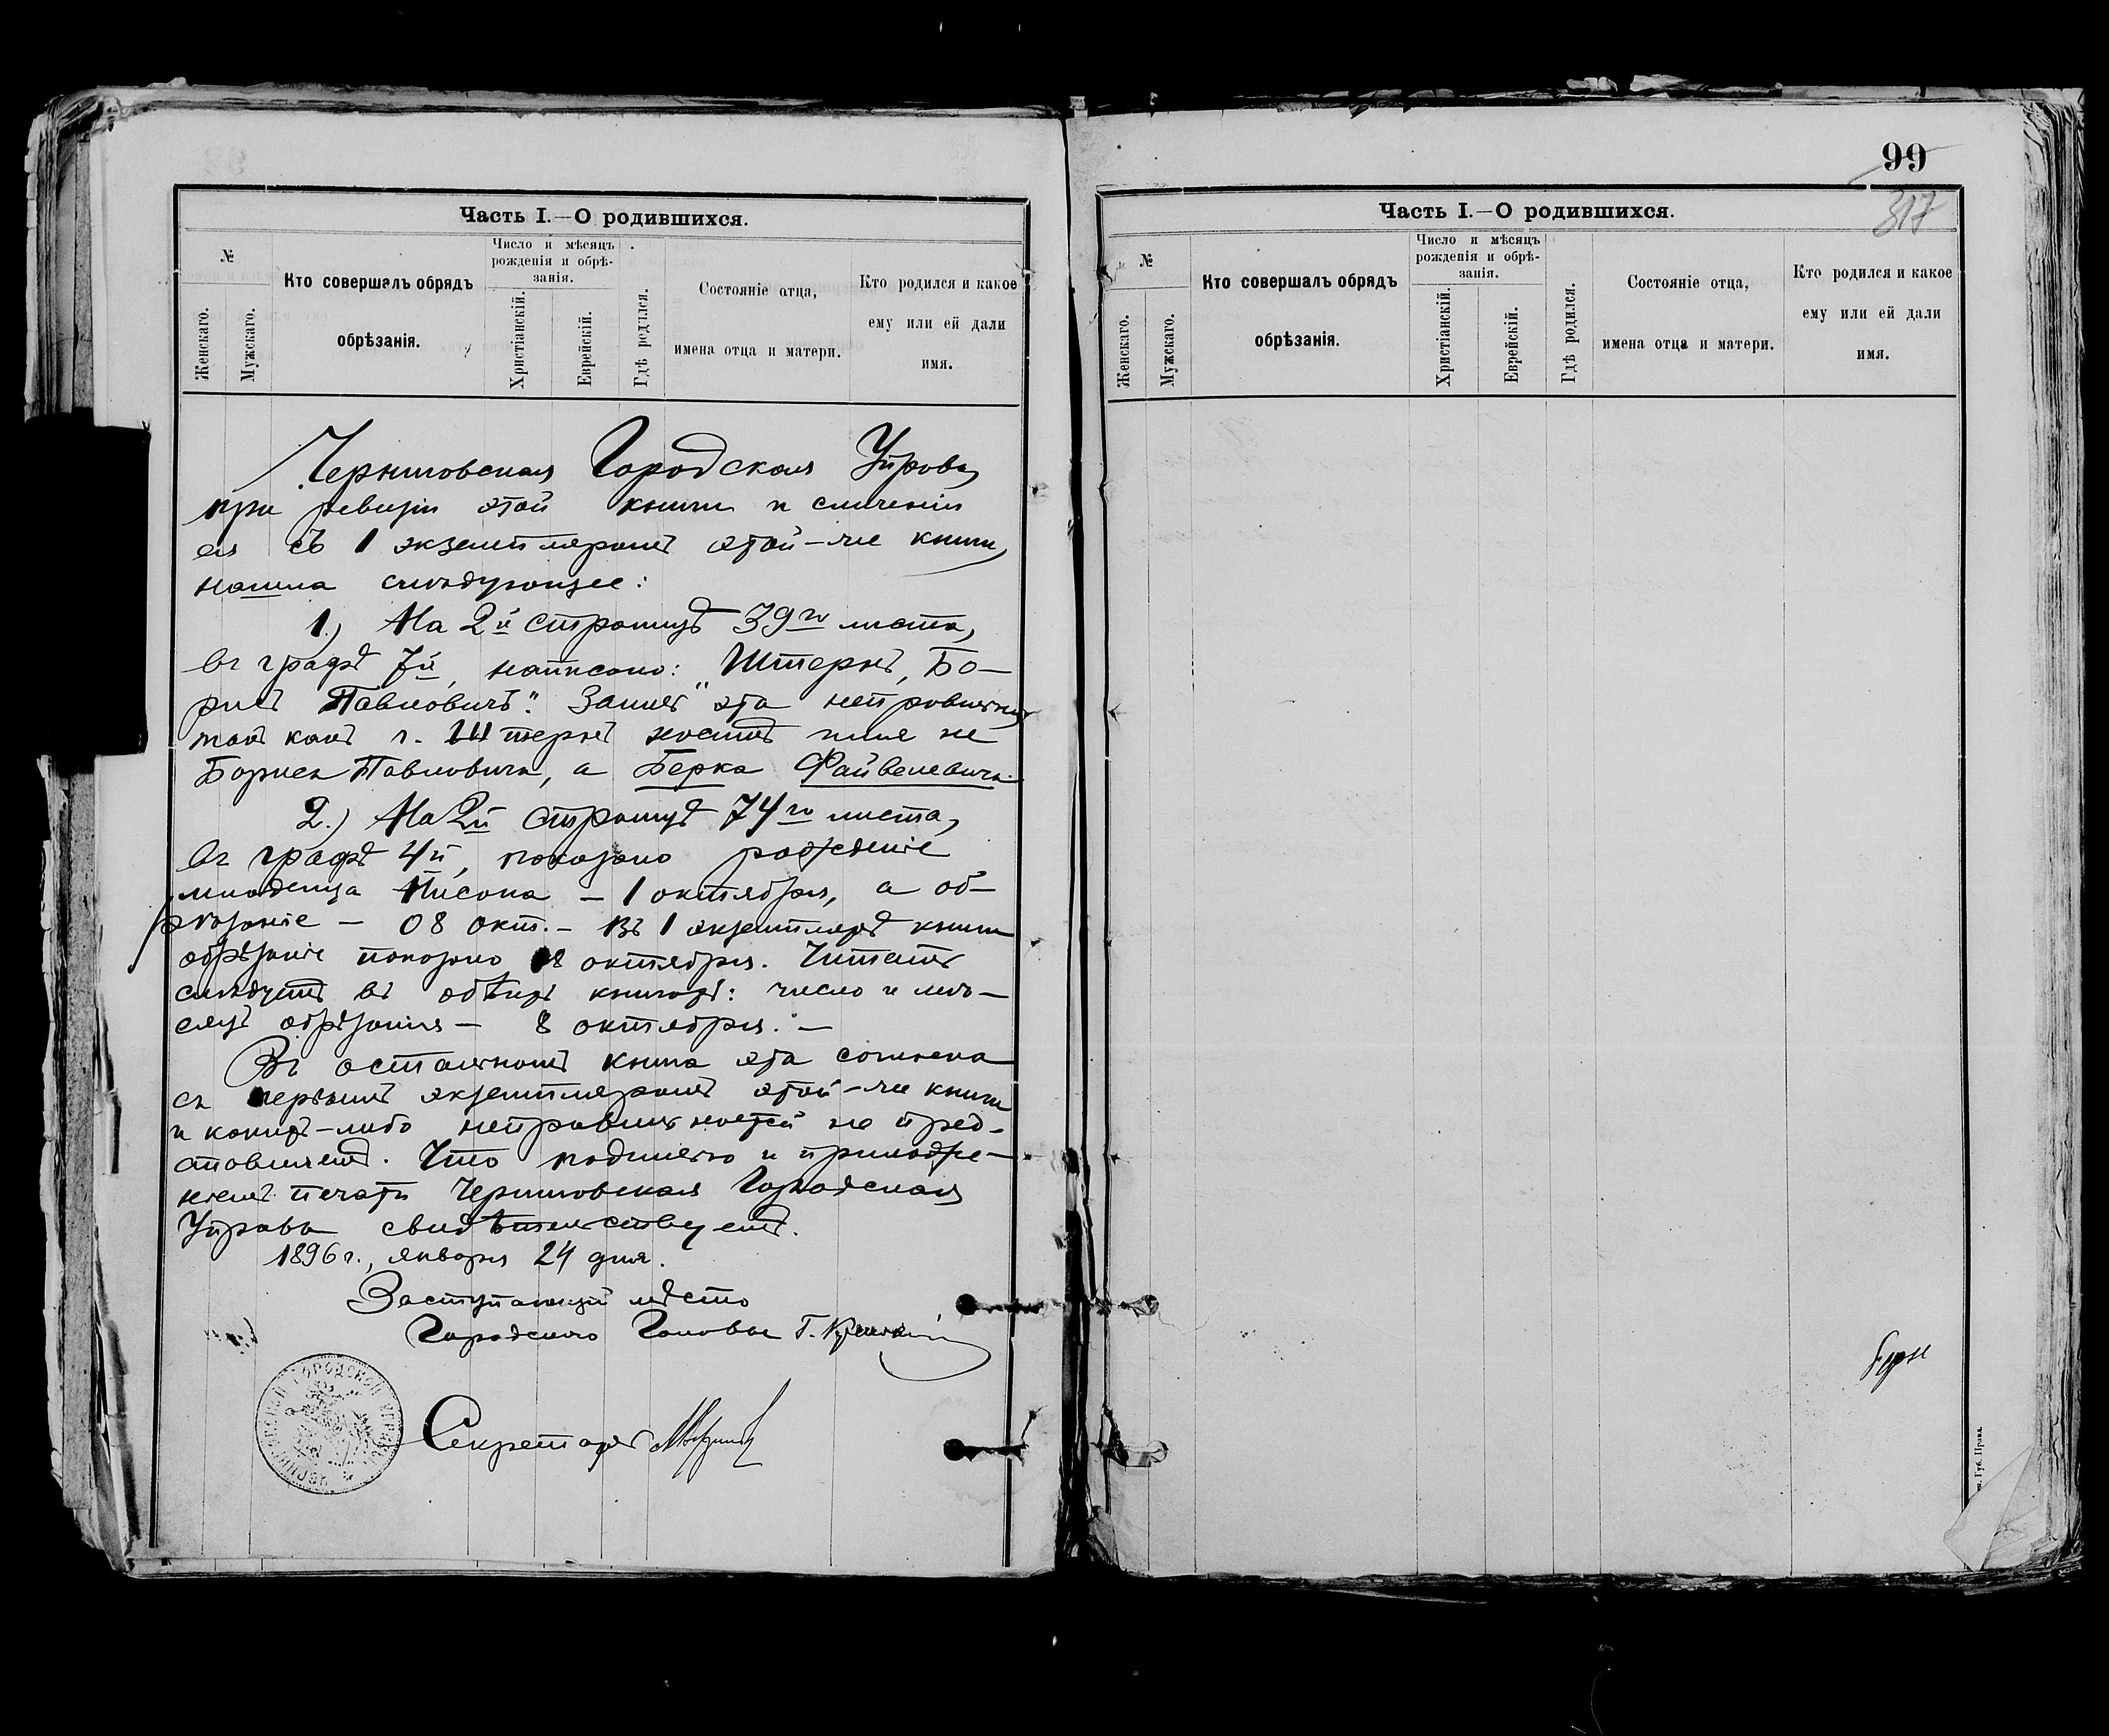 Часть I.—О родившихся.
№
Женскаго.
Мужскаго.
Кто совершалъ обрядъ
обрѣзанія.
Число и мѣсяцъ
рожденія и обрѣ-
занія.
Христіанскій.
Еврейскій.
Гдѣ родился.
Состояніе отца,
имена отца и матери.
Кто родился и какое
ему или ей дали
имя.
Черниговская Городская Управа,
при ревизіи этой книги и сличеніи
ея съ 1 экземпляромъ этой-же книги,
нашла слѣдующее:
1.) На 2й страницѣ 39го листа,
въ графѣ 7й, написано: "Штернъ, Бо-
рисъ Павловичъ". Запись эта неправильна,
такъ какъ г. Штернъ носитъ имя не
Бориса Павловича, а Берка Файвелевича.
2.) На 2й страницѣ 74го листа,
въ графѣ 4й, показано рожденіе
младенца Нисона — 1 октября, а об-
рѣзаніе — 08 окт. — Въ 1 экземплярѣ книги
обрѣзаніе показано 8 октября. Читать
слѣдуетъ въ обѣихъ книгахъ: число и мѣ-
сяцъ обрѣзанія — 8 октября. —
Въ остальномъ книга эта согласна
съ первымъ экземпляромъ этой-же книги
и какихъ-либо неправильностей не пред-
ставляетъ. Что подписью и приложе-
ніемъ печати Черниговская Городская
Управа свидѣтельствуетъ.
1896 г., января 24 дня.
Заступающій мѣсто
Городского Головы Г.
Секретарь
99
317
Часть I.—О родившихся.
№
Женскаго.
Мужскаго.
Кто совершалъ обрядъ
обрѣзанія.
Число и мѣсяцъ
рожденія и обрѣ-
занія.
Христіанскій.
Еврейскій.
Гдѣ родился.
Состояніе отца,
имена отца и матери.
Кто родился и какое
ему или ей дали
имя.
Губ. Правл.